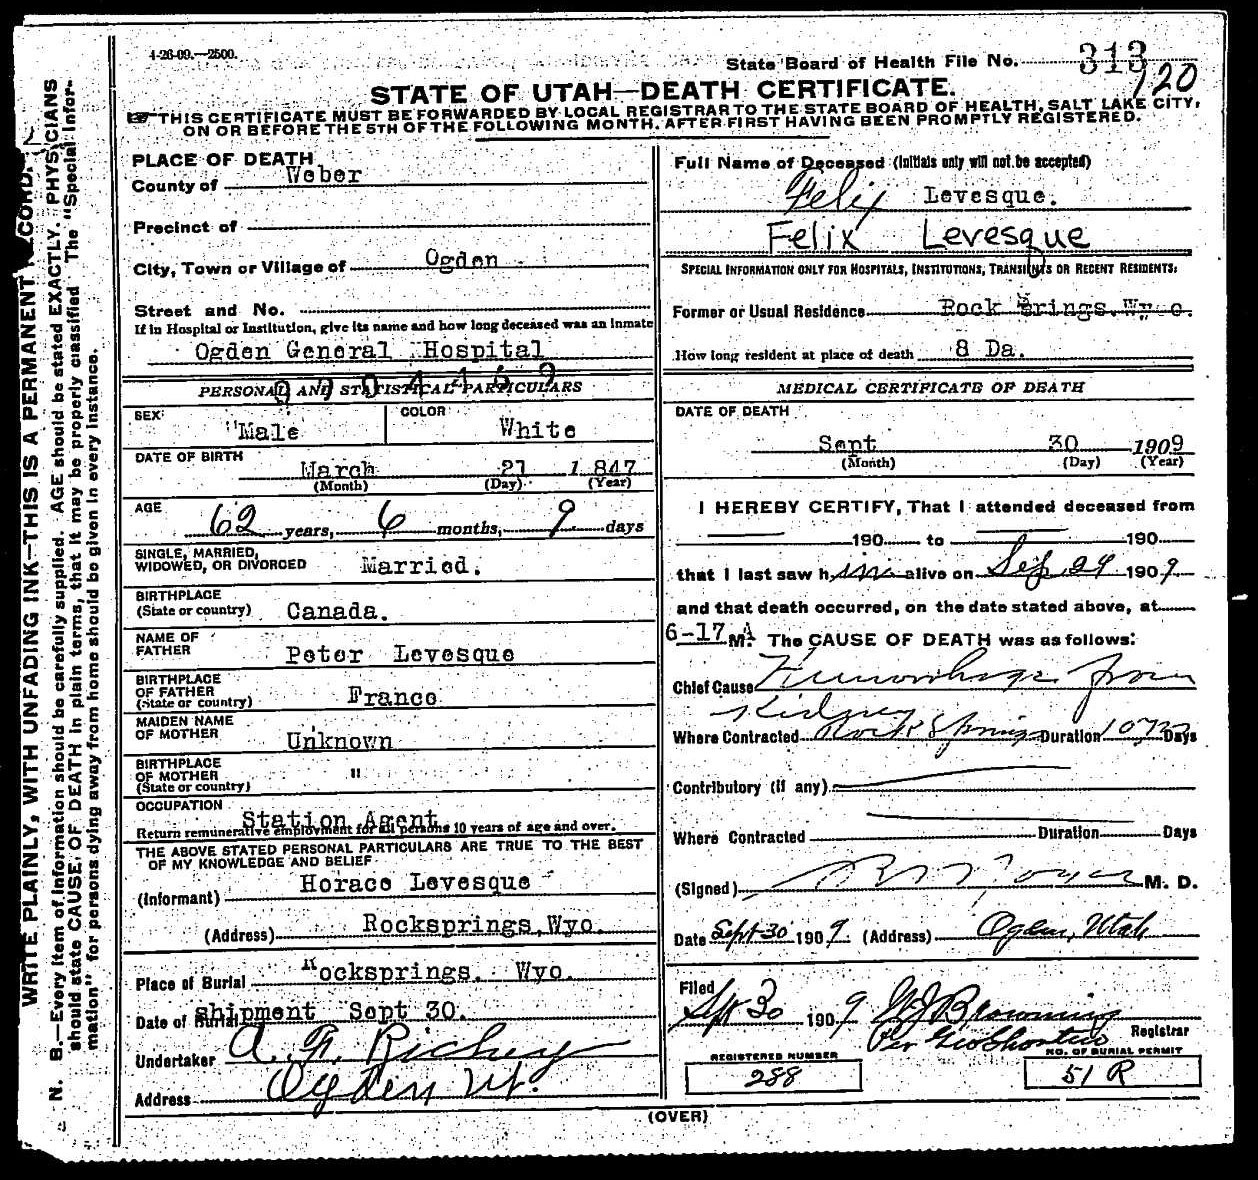 4-26-09.—2500.
State Board of Health File No. 313
120
STATE OF UTAH—DEATH CERTIFICATE.
THIS CERTIFICATE MUST BE FORWARDED BY LOCAL REGISTRAR TO THE STATE BOARD OF HEALTH, SALT LAKE CITY,
ON OR BEFORE THE 5TH OF THE FOLLOWING MONTH, AFTER FIRST HAVING BEEN PROMPTLY REGISTERED.
WRITE PLAINLY, WITH UNFADING INK—THIS IS A PERMANENT RECORD.
N. B.—Every item of information should be carefully supplied. AGE should be stated EXACTLY. PHYSICIANS
should state CAUSE OF DEATH in plain terms, that it may be properly classified The "Special Infor-
mation" for persons dying away from home should be given in every instance.
PLACE OF DEATH
County of Weber
Precinct of
City, Town or Village of Ogden
Street and No.
If in Hospital or Institution, give its name and how long deceased was an inmate
Ogden General Hospital
PERSONAL AND STATISTICAL PARTICULARS
SEX
Male
COLOR
White
DATE OF BIRTH
March 21 1 847
(Month) (Day) (Year)
AGE
62 years, 6 months, 9 days
SINGLE, MARRIED,
WIDOWED, OR DIVORCED Married.
BIRTHPLACE
(State or country) Canada.
NAME OF
FATHER Peter Levesque
BIRTHPLACE
OF FATHER
(State or country) France
MAIDEN NAME
OF MOTHER Unknown
BIRTHPLACE
OF MOTHER "
(State or country)
OCCUPATION
Station Agent
Return remunerative employment for all persons 10 years of age and over.
THE ABOVE STATED PERSONAL PARTICULARS ARE TRUE TO THE BEST
OF MY KNOWLEDGE AND BELIEF
(Informant) Horace Levesque
(Address) Rocksprings, Wyo.
Place of Burial Rocksprings. Wyo.
Date of Burial shipment Sept 30.
Undertaker A. F. Richey
Address Ogden Ut.
Full Name of Deceased (Initials only will not be accepted)
Felix Levesque.
Felix Levesque
SPECIAL INFORMATION ONLY FOR HOSPITALS, INSTITUTIONS, TRANSIENTS OR RECENT RESIDENTS:
Former or Usual Residence Rock Springs, Wyo.
How long resident at place of death 8 Da.
MEDICAL CERTIFICATE OF DEATH
DATE OF DEATH
Sept 30 1909
(Month) (Day) (Year)
I HEREBY CERTIFY, That I attended deceased from
190 to 190
that I last saw him alive on Sep 29 1909
and that death occurred, on the date stated above, at
6-17 A M. The CAUSE OF DEATH was as follows:
Chief Cause Hemorrhage from
Kidney
Where Contracted Rock Springs Duration 10 Days
Contributory (if any)
Where Contracted Duration Days
(Signed) M. D.
Date Sept 30 1909. (Address) Ogden, Utah
Filed
Sept 30 1909 Browning
Registrar
REGISTERED NUMBER
288
NO. OF BURIAL PERMIT
51 R
(OVER)